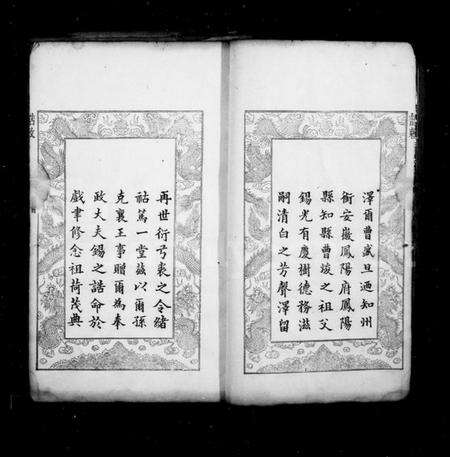 澤爾曹盛旦廼知州
銜安徽鳳陽府鳳陽
縣知縣曹煥之祖父
錫光有慶樹德務滋
嗣清白之芳聲澤留
再世衍弓裘之令緒
祜篤一堂茲以爾孫
克襄王事贈爾為奉
政大夫錫之誥命於
戲聿修念祖荷茂典
誥敕